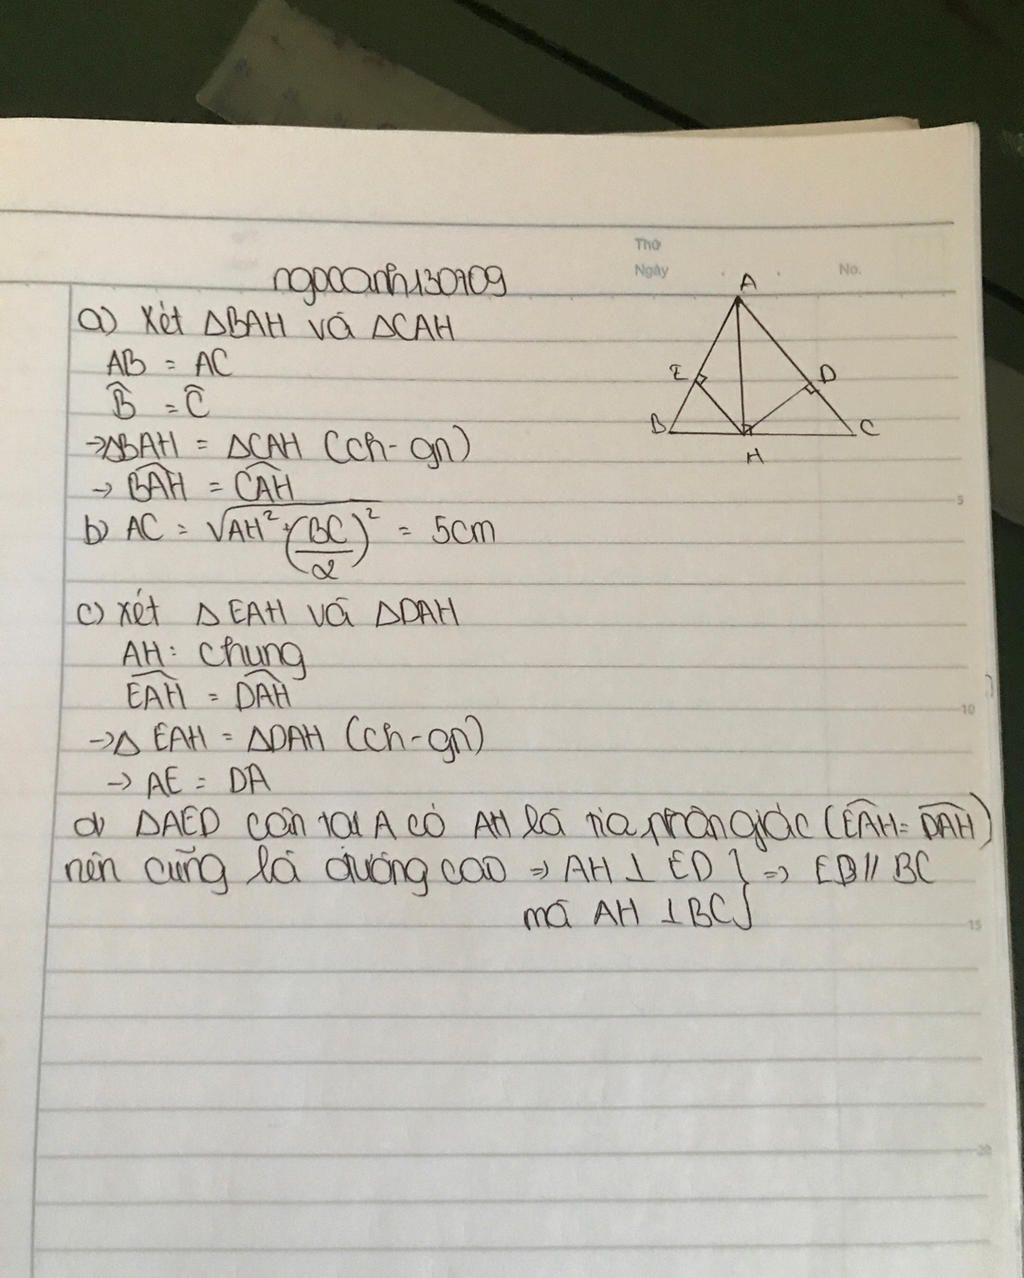 Thứ
Ngày
No.
ngocanh130709
a) Xét ΔBAH và ΔCAH
AB = AC
B̂ = Ĉ
→ΔBAH = ΔCAH (ch-gn)
→ B̂AH = ĈAH
b) AC = √AH² + (BC/2)² = 5cm
c) Xét ΔEAH và ΔDAH
AH: chung
ÊAH = D̂AH
→Δ EAH = ΔDAH (ch-gn)
→ AE = DA
d) ΔAED cân tại A có AH là tia phân giác (ÊAH = D̂AH)
nên cũng là đường cao ⇒ AH ⊥ ED } ⇒ ED // BC
mà AH ⊥ BC
A
E
D
B
C
H
5
10
15
20